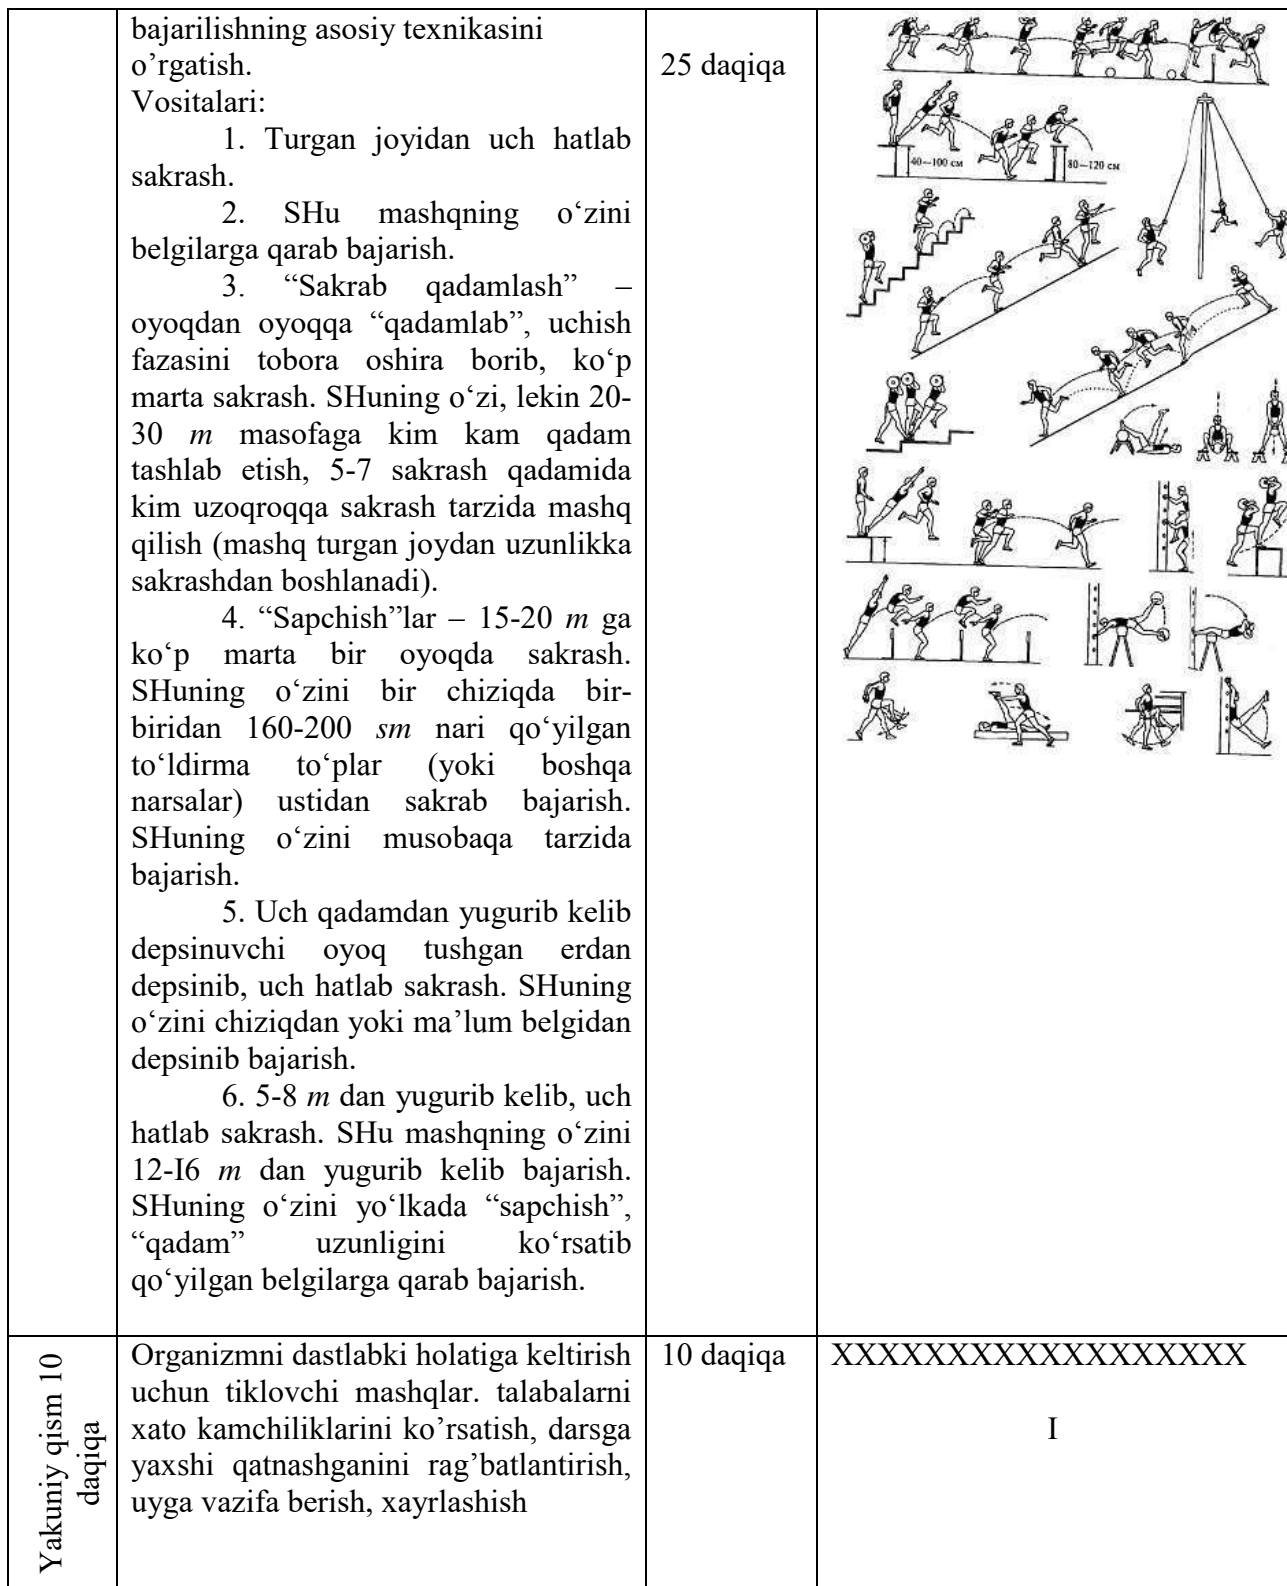 bajarilishning asosiy texnikasini
o’rgatish.
Vositalari:
1. Turgan joyidan uch hatlab
sakrash.
2. SHu mashqning o‘zini
belgilarga qarab bajarish.
3. “Sakrab qadamlash” –
oyoqdan oyoqqa “qadamlab”, uchish
fazasini tobora oshira borib, ko‘p
marta sakrash. SHuning o‘zi, lekin 20-
30 m masofaga kim kam qadam
tashlab etish, 5-7 sakrash qadamida
kim uzoqroqqa sakrash tarzida mashq
qilish (mashq turgan joydan uzunlikka
sakrashdan boshlanadi).
4. “Sapchish”lar – 15-20 m ga
ko‘p marta bir oyoqda sakrash.
SHuning o‘zini bir chiziqda bir-
biridan 160-200 sm nari qo‘yilgan
to‘ldirma to‘plar (yoki boshqa
narsalar) ustidan sakrab bajarish.
SHuning o‘zini musobaqa tarzida
bajarish.
5. Uch qadamdan yugurib kelib
depsinuvchi oyoq tushgan erdan
depsinib, uch hatlab sakrash. SHuning
o‘zini chiziqdan yoki ma’lum belgidan
depsinib bajarish.
6. 5-8 m dan yugurib kelib, uch
hatlab sakrash. SHu mashqning o‘zini
12-I6 m dan yugurib kelib bajarish.
SHuning o‘zini yo‘lkada “sapchish”,
“qadam” uzunligini ko‘rsatib
qo‘yilgan belgilarga qarab bajarish.
25 daqiqa
40—100 см
80—120 см
Yakuniy qism 10
daqiqa
Organizmni dastlabki holatiga keltirish
uchun tiklovchi mashqlar. talabalarni
xato kamchiliklarini ko’rsatish, darsga
yaxshi qatnashganini rag’batlantirish,
uyga vazifa berish, xayrlashish
10 daqiqa
XXXXXXXXXXXXXXXXXX
I